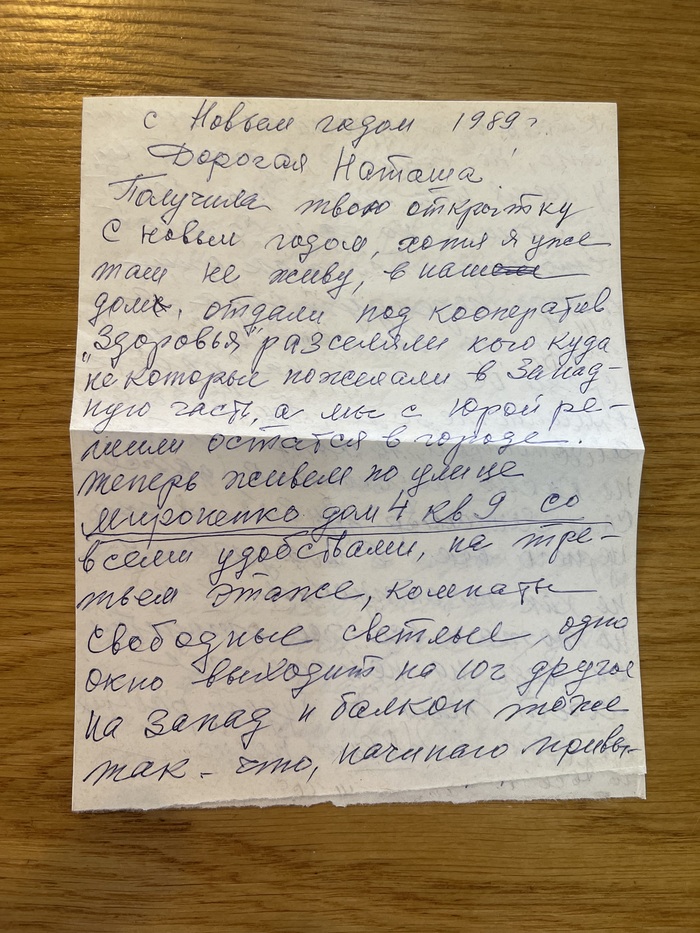 с Новым годом 1989 г.
Дорогая Наташа
Получила твою открытку
С новым годом, хотя я уже
там не живу, в наш
дом, отдали под кооператив
"Здоровья" разселяли кого куда
некоторые пожелали в Запад-
ную часть, а мы с Юрой ре-
шили остатся в городе.
теперь живем по улице
Мироненко дом 4 кв 9 со
всеми удобствами, на тре-
тьем этаже, комнаты
свободные светлые, одно
окно выходит на юг другое
на запад и балкон тоже
так-что, начинаю привы-